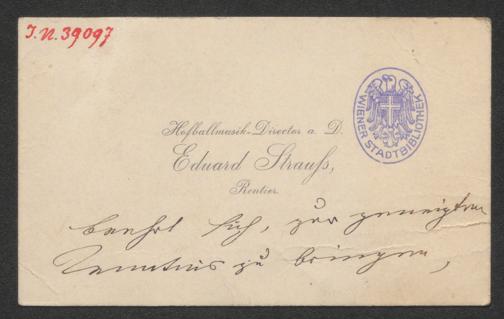 J.N. 39097
WIENER STADTBIBLIOTHEK
Hofballmusik-Director a. D.
Eduard Strauß,
Rentier.
beehrt sich, zur geneigten
Kenntnis zu bringen,